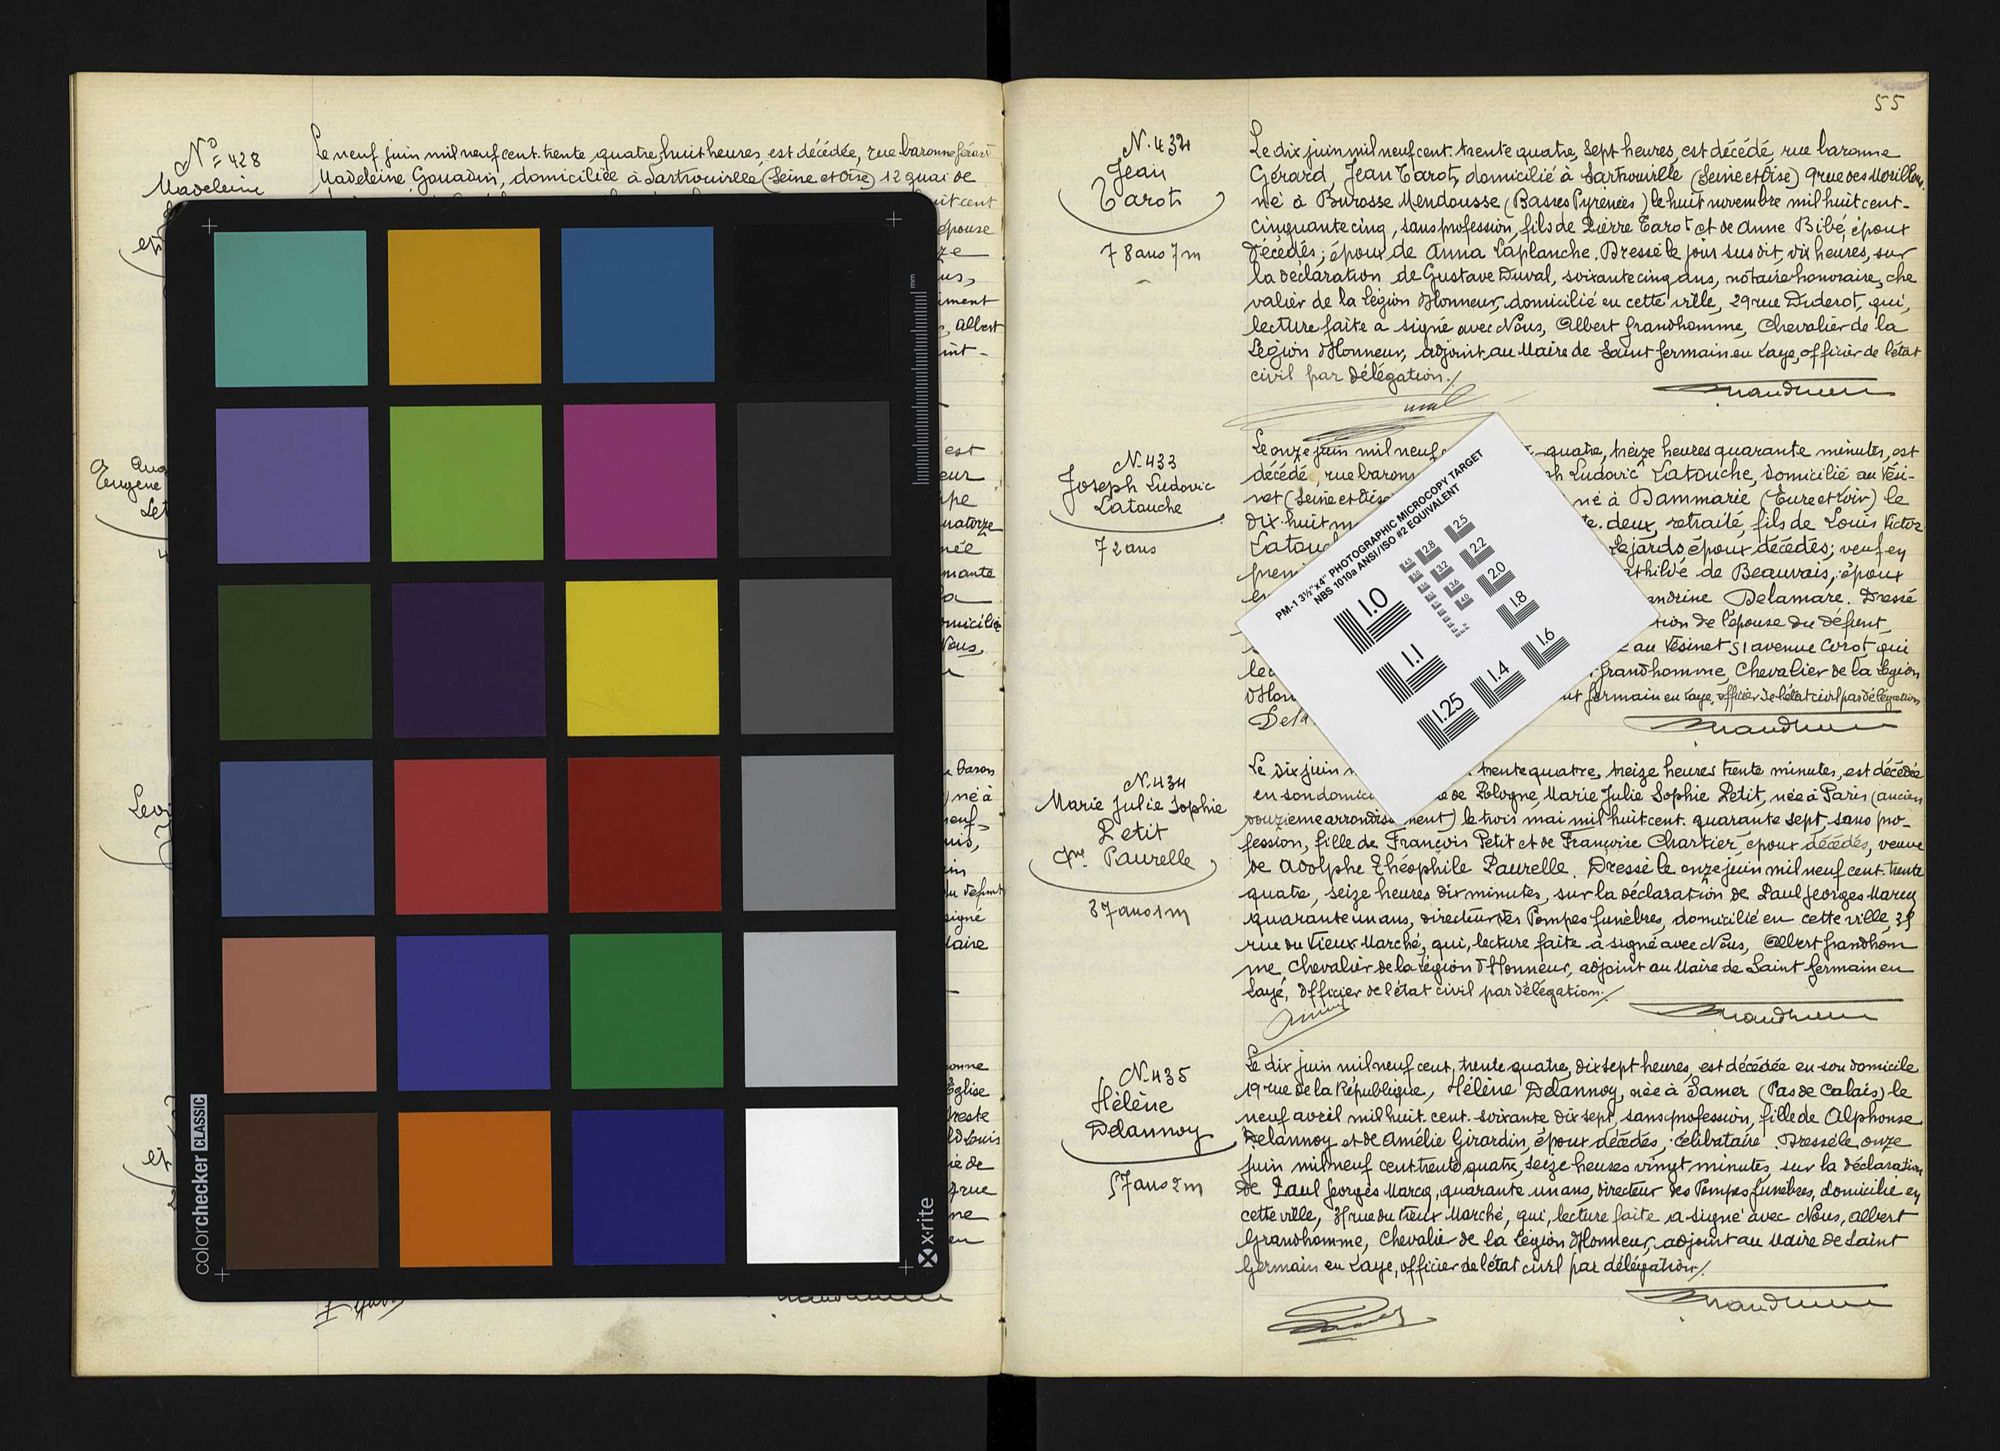 N° 428
Madeleine
Le neuf juin mil neuf cent. trente quatre, huit heures, est décédée, rue baronne Gérard
Madeleine Gouadin, domiciliée à Sartrouville (Seine et Oise) 12 quai de
uit cent
épouse
ze
us,
ment
, Albert
int-
est
eur
pe
uatorze
née
mante
omicilié
Nous,
Aug
Eugène
Let
baron
) né à
neuf-
uis,
in
du défunt
signé
Maire
Levi
onne
Eglise
reste
d Louis
ie de
rue
ne
en
et
mm
colorchecker CLASSIC
x·rite
55
N. 432
Jean
Tarot
78 ans 7 m
Le dix juin mil neuf cent. trente quatre, sept heures, est décédé, rue baronne
Gérard, Jean Tarot, domicilié à Sartrouville (Seine et Oise) 9 rue des Morillons,
né à Burosse Mendousse (Basses Pyrénées) le huit novembre mil huit cent-
cinquante cinq, sans profession, fils de Pierre Tarot et de Anne Bibé, époux
décédés; époux de Anna Laplanche. Dressé le jour susdit, dix heures, sur
la déclaration de Gustave Duval, soixante cinq ans, notaire honoraire, che
valier de la légion d'Honneur, domicilié en cette ville, 29 rue Diderot, qui,
lecture faite a signé avec Nous, Albert Grandhomme, Chevalier de la
Légion d'Honneur, adjoint au Maire de Saint Germain en Laye, officier de l'état
civil par délégation./
N. 433
Joseph Ludovic
Latouche
72 ans
Le onze juin mil neuf quatre, treize heures quarante minutes, est
décédé, rue baron h Ludovic Latouche, domicilié au Vési-
net (Seine et Oise né à Dammarie (Eure et Loir) le
dix huit m te. deux, retraité, fils de Louis Victor
Latouc Lejards époux décédés; veuf en
prem athilde de Beauvais, époux
en andrine Delamare. Dressé
tion de l'épouse du défunt,
au Vésinet 51 avenue Corot, qui
lec Grandhomme, Chevalier de la Légion
d'Hon nt Germain en Laye, officier de l'état civil par délégation
Dela
PM-1 3½"x4" PHOTOGRAPHIC MICROCOPY TARGET
NBS 1010a ANSI/ISO #2 EQUIVALENT
1.0
1.1
1.25
1.4
1.6
1.8
2.0
2.2
2.5
2.8
3.2
3.6
4.0
N. 434
Marie Julie Sophie
Petit
Vve Paurelle
87 ans 1 m
Le dix juin trente quatre, treize heures trente minutes, est décédée
en son domici de Pologne, Marie Julie Sophie Petit, née à Paris (ancien
douzième arrondissement) le trois mai mil huit cent. quarante sept, sans pro-
fession, fille de François Petit et de Françoise Chartier, époux décédés, veuve
de Adolphe Théophile Paurelle. Dressé le onze juin mil neuf cent. trente
quatre, seize heures dix minutes, sur la déclaration de Paul Georges Marcq
quarante un ans, directeur des Pompes funèbres, domicilié en cette ville, 35
rue du Vieux Marché, qui, lecture faite a signé avec Nous, Albert Grandhom
me, Chevalier de la Légion d'Honneur, adjoint au Maire de Saint Germain en
Laye, Officier de l'état civil par délégation./
N. 435
Hélène
Delannoy
57 ans 2 m
Le dix juin mil neuf cent, trente quatre, dix sept heures, est décédée en son domicile
19 rue de la République, Hélène Delannoy, née à Samer (Pas de Calais) le
neuf avril mil huit. cent. soixante dix sept, sans profession, fille de Alphonse
Delannoy et de Amélie Girardin, époux décédés, célibataire. Dressé le onze
juin mil neuf cent trente quatre, seize heures vingt minutes, sur la déclaration
de Paul Georges Marcq, quarante un ans, directeur des Pompes funèbres, domicilié en
cette ville, 35 rue du Vieux Marché, qui, lecture faite a signé avec Nous, Albert
Grandhomme, Chevalier de la Légion d'Honneur, adjoint au Maire de Saint
Germain en Laye, officier de l'état civil par délégation/.